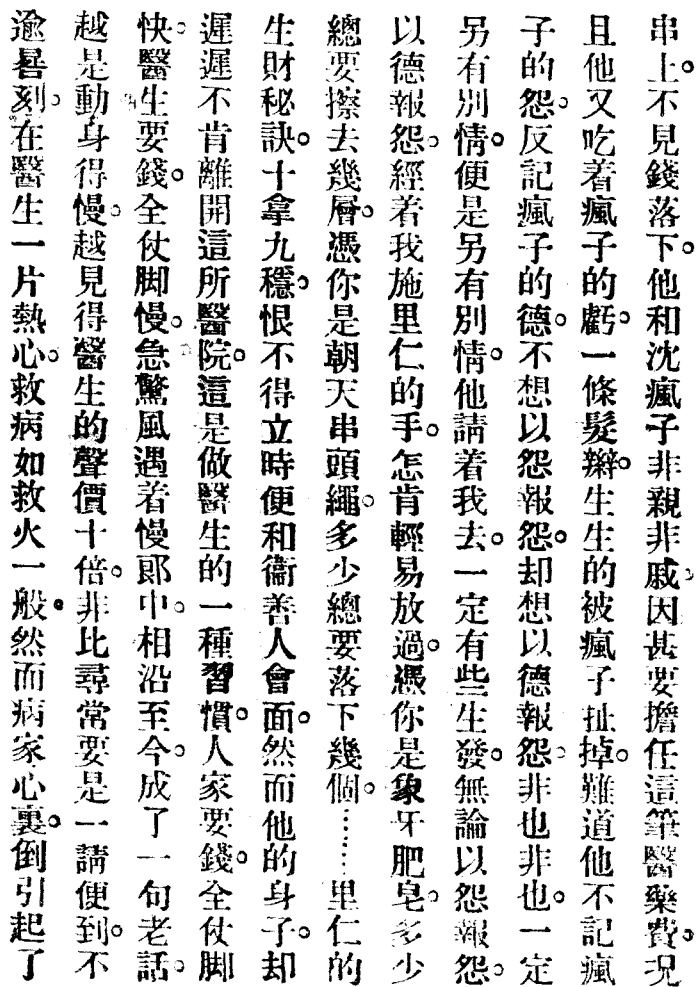 串上。不見錢落下。他和沈瘋子非親非戚。因甚要擔任這筆醫藥費。況
且他又吃着瘋子的虧。一條髮辮。生生的被瘋子扯掉。難道他不記瘋
子的怨。反記瘋子的德。不想以怨報怨。却想以德報怨。非也非也。一定
另有別情。便是另有別情。他請着我去。一定有些生發。無論以怨報怨。
以德報怨。經着我施里仁的手。怎肯輕易放過。憑你是象牙肥皂。多少
總要擦去幾層。憑你是朝天串頭繩。多少總要落下幾個。……里仁的
生財秘訣。十拿九穩。恨不得立時便和衞善人會面。然而他的身子。却
遲遲不肯離開這所醫院。這是做醫生的一種習慣。人家要錢。全仗脚
快。醫生要錢。全仗脚慢。急驚風遇着慢郞中。相沿至今。成了一句老話。
越是動身得慢。越見得醫生的聲價十倍。非比尋常。要是一請便到。不
逾晷刻。在醫生一片熱心。救病如救火一般。然而病家心裏。倒引起了